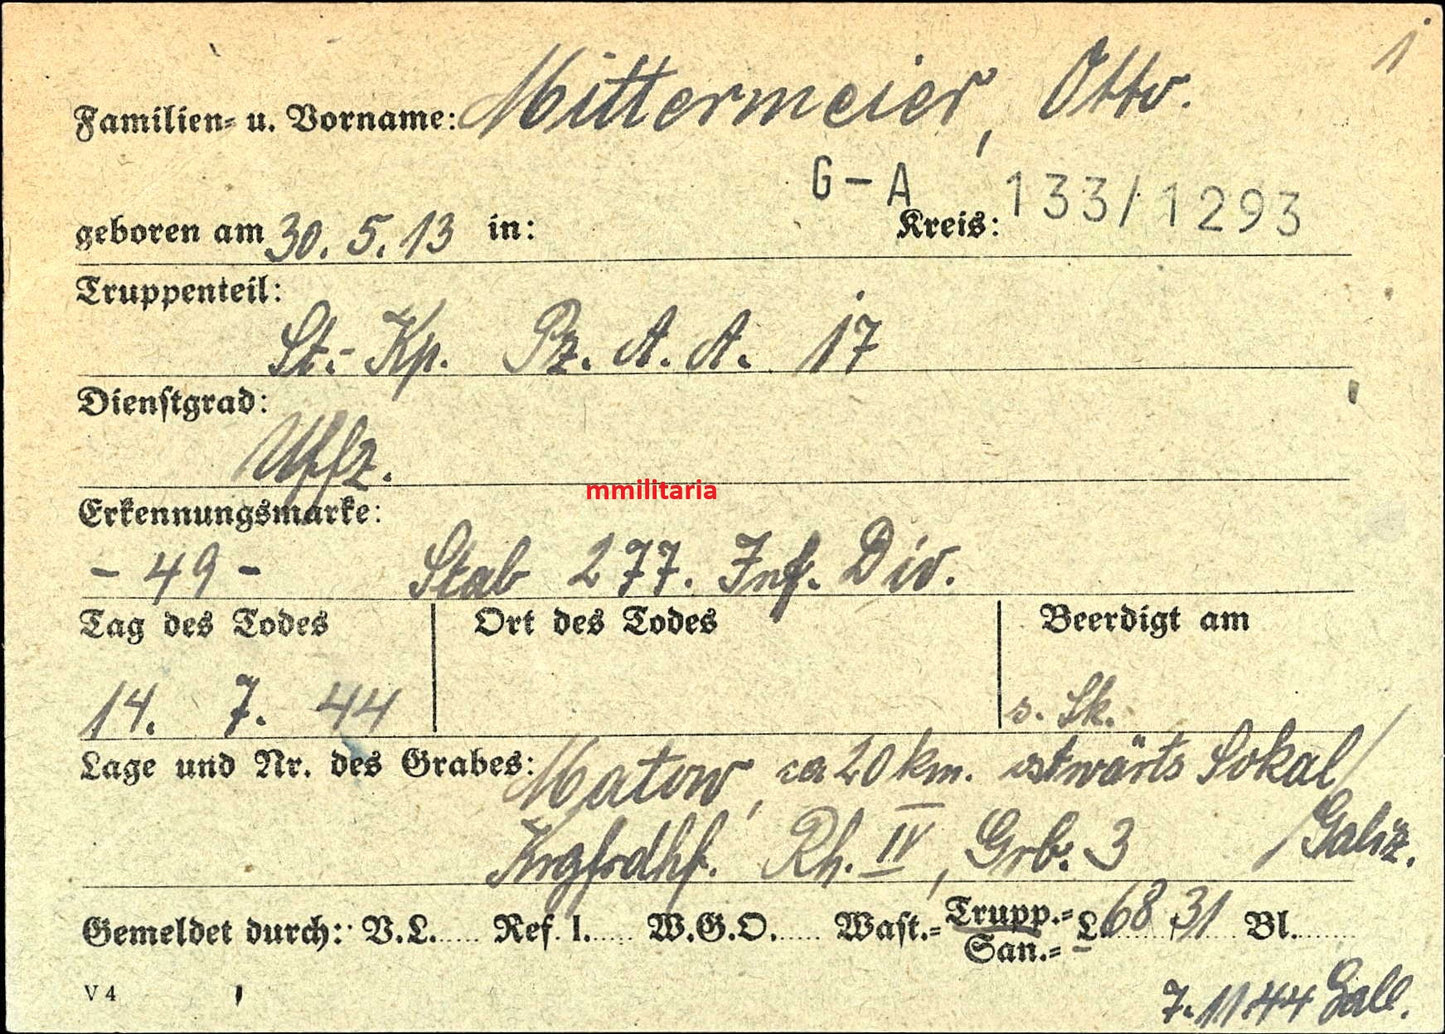 1
Familien- u. Vorname: Mittermeier, Otto.
G-A 133/1293
geboren am 30. 5. 13 in: Kreis:
Truppenteil:
St.-Kp. Pz. A. A. 17
Dienstgrad:
Uffz.
mmilitaria
Erkennungsmarke:
- 49 - Stab 277. Inf. Div.
Tag des Todes Ort des Todes Beerdigt am
14. 7. 44 s. Sk.
Lage und Nr. des Grabes: Matow, ca 20 km. ostwärts Sokal/
Krgfrdhf. Rh. IV, Grb. 3 /Galiz.
Gemeldet durch: V.L..... Ref. 1..... W.G.O..... Wast.= Trupp.= L 68 31 Bl.......
San.=
V 4 7. 11. 44